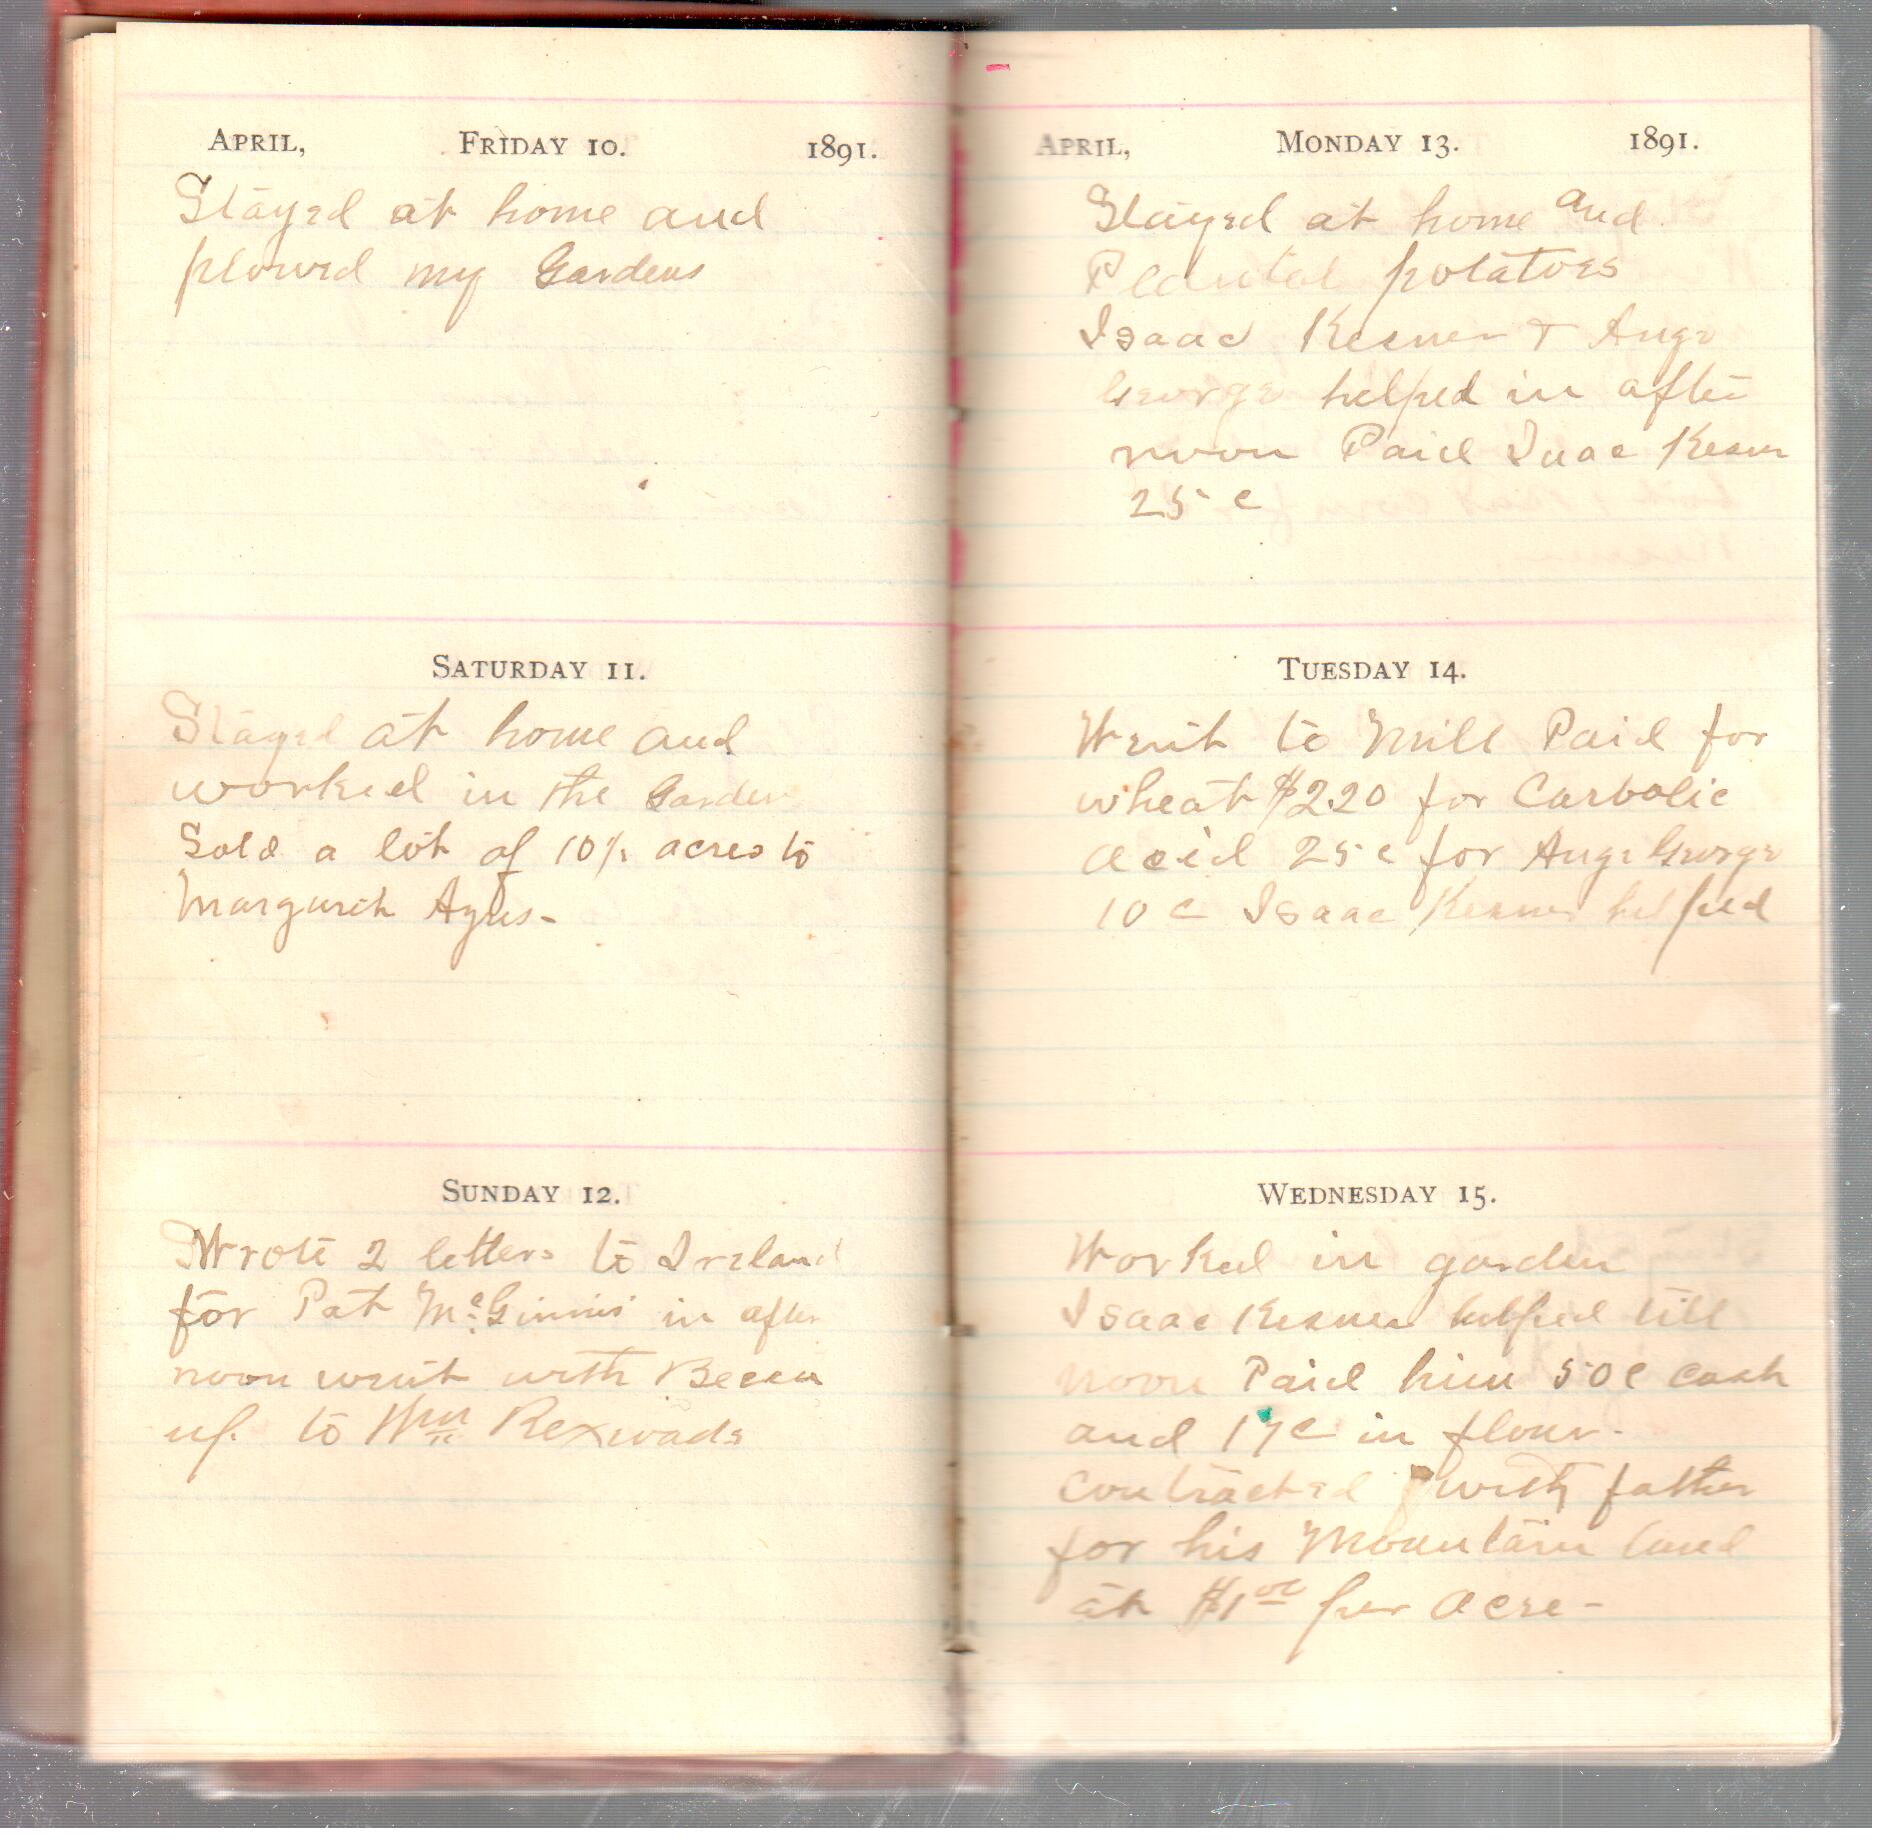 APRIL, FRIDAY 10. 1891.
Stayed at home and
plowed my Gardens
SATURDAY 11.
Stayed at home and
worked in the Garden
Sold a lot of acres to
Margaret
SUNDAY 12.
Wrote 2 letters to Ireland
for Pat McGinnis in after
noon went with Becca
up to Wm Rexrods
APRIL, MONDAY 13. 1891.
Stayed at home and
Planted potatoes
Isaac Kesner + Ange
George helped in after
noon Paid Isaac Kesner
25 c
TUESDAY 14.
Went to Mill Paid for
wheat $2.20 for Carbolic
acid 25 c for Ange George
10 c Isaac Kesner helped
WEDNESDAY 15.
Worked in garden
Isaac Kesner helped till
noon Paid him 50c cash
and 17c in flour.
contracted with father
for his Mountain land
at $1.00 per acre-